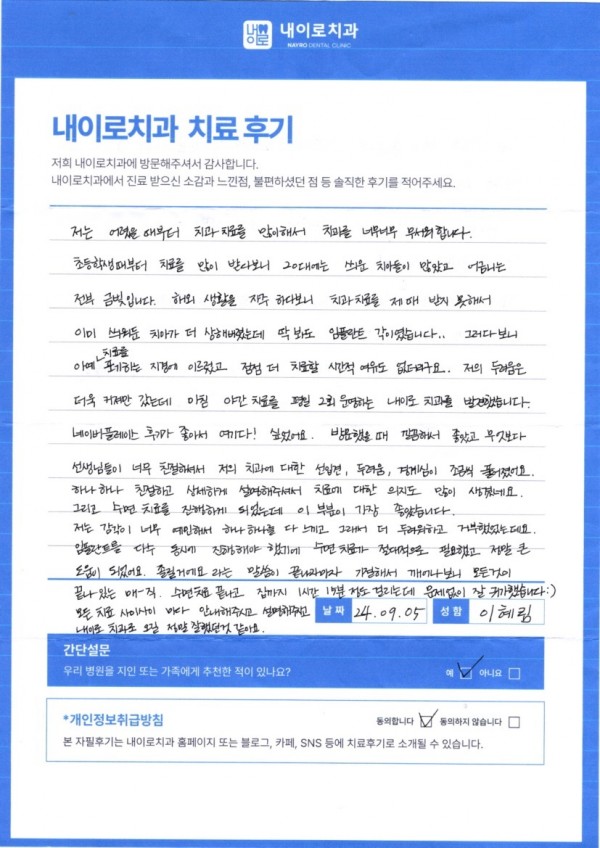 내이로
내이로치과
NAYRO DENTAL CLINIC
내이로치과 치료 후기
저희 내이로치과에 방문해주셔서 감사합니다.
내이로치과에서 진료 받으신 소감과 느낀점, 불편하셨던 점 등 솔직한 후기를 적어주세요.
저는 어렸을 때부터 치과 치료를 많이해서 치과를 너무너무 무서워합니다.
초등학생때부터 치료를 많이 받다보니 20대에는 씌운 치아들이 많았고 어금니는
전부 금빛입니다. 해외 생활을 자주 하다보니 치과치료를 제때 받지 못해서
이미 씌워둔 치아가 더 상해버렸는데 딱 봐도 임플란트 각이였습니다.. 그러다 보니
아예 치료를 포기하는 지경에 이르렀고 점점 더 치료할 시간적 여유도 없더라구요. 저의 두려움은
더욱 커져만 갔는데 마침 야간 치료를 평일 2회 운영하는 내이로 치과를 발견했습니다.
네이버플레이스 후기가 좋아서 여기다! 싶었어요. 방문했을 때 깔끔해서 좋았고 무엇보다
선생님들이 너무 친절하셔서 저의 치과에 대한 선입견, 두려움, 경계심이 조금씩 풀어졌어요.
하나하나 친절하고 상세하게 설명해주셔서 치료에 대한 의지도 많이 생겼네요.
그리고 수면 치료를 진행하게 되었는데 이 부분이 가장 좋았습니다.
저는 감각이 너무 예민해서 하나하나를 다 느끼고 그래서 더 두려워하고 거부했었는데요.
임플란트를 다수 동시에 진행해야 했기에 수면 치료가 절대적으로 필요했고 정말 큰
도움이 되었어요. 졸릴거에요 라는 말씀이 끝나자마자 기절해서 깨어나보니 모든것이
끝나 있는 매-직. 수면치료 끝나고 집까지 1시간 15분 정도 걸리는데 문제없이 잘 귀가했습니다:)
모든 치료 사이사이 마다 안내해주시고 설명해주고
내이로 치과로 오길 정말 잘했던것 같아요.
날짜 24.09.05 성함 이혜림
간단설문
우리 병원을 지인 또는 가족에게 추천한 적이 있나요? 예 아니요
*개인정보취급방침 동의합니다 동의하지 않습니다
본 자필후기는 내이로치과 홈페이지 또는 블로그, 카페, SNS 등에 치료후기로 소개될 수 있습니다.